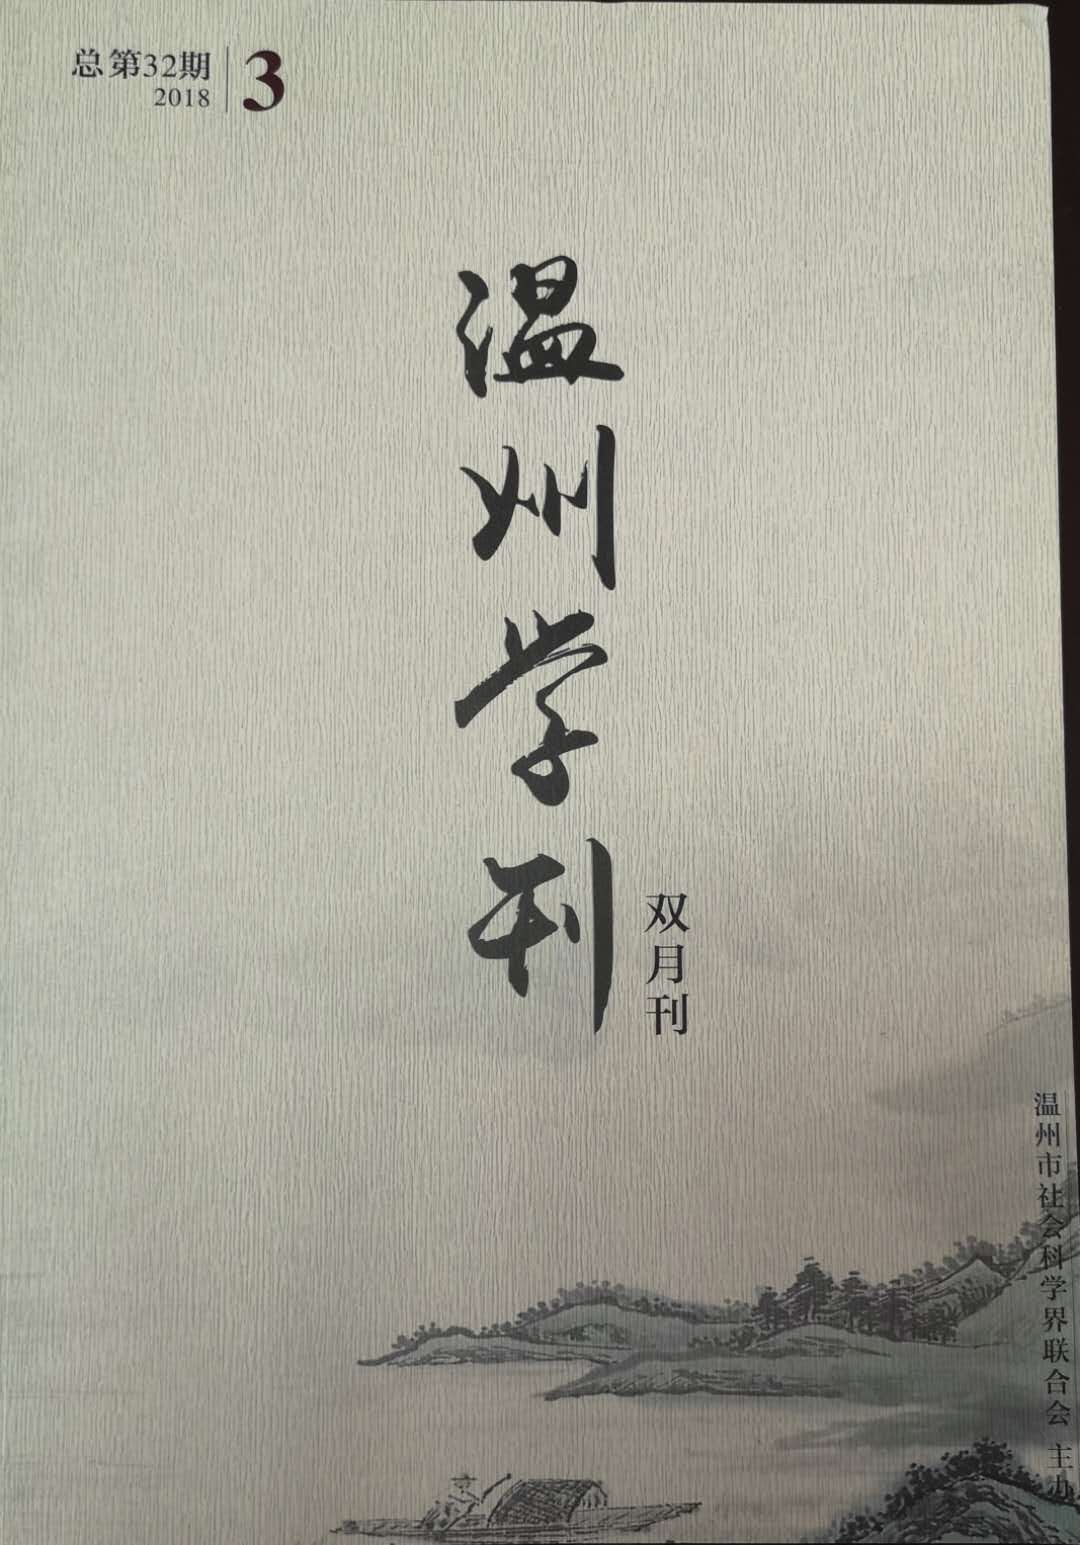 总第32期
2018
3
温州学刊
双月刊
温州市社会科学界联合会 主办